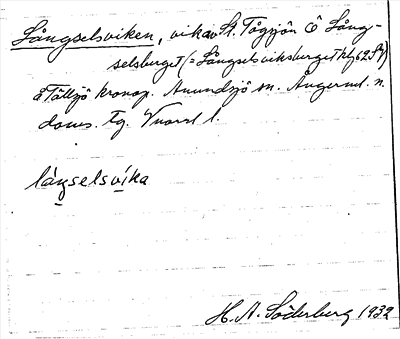 Långselsviken, vik av St. Tågsjön Ö Lång-
selsberget (= Långselsviksberget hg 62 SV)
å Tållsjö kronop. Anundsjö sn. Ångerml. n.
doms. tg. l.
långselsvika
H. A. Söderberg 1932